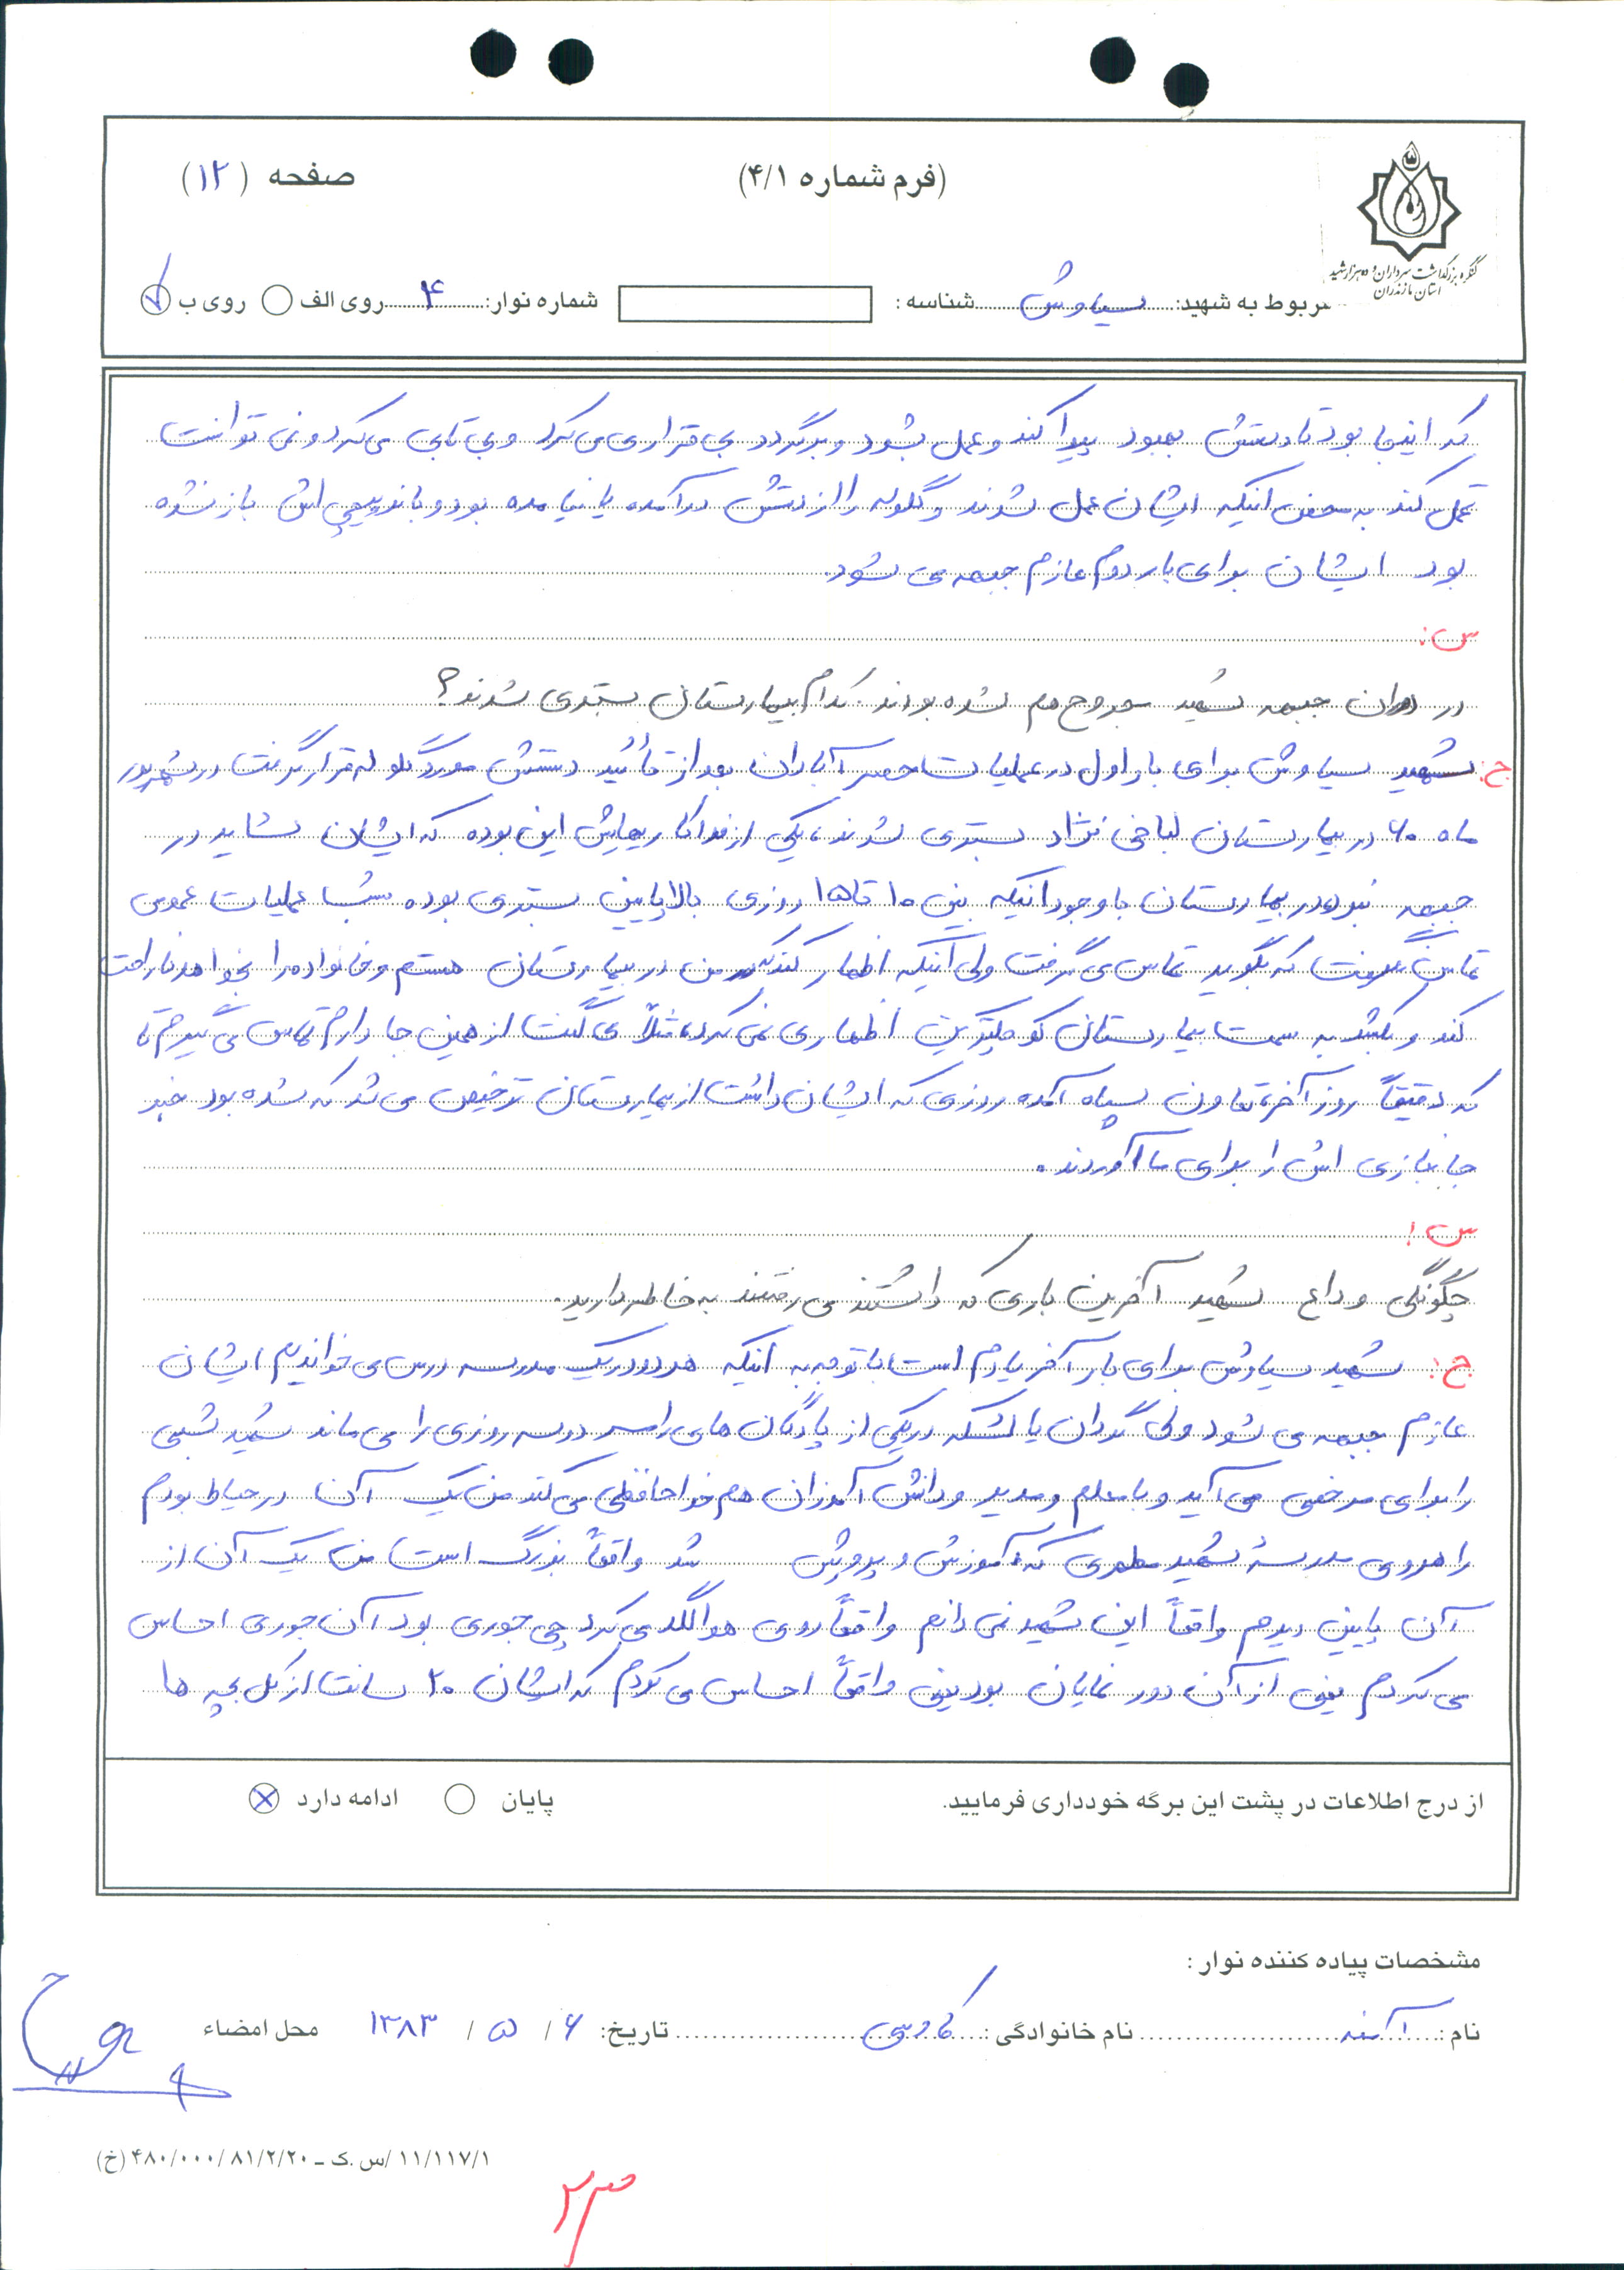 (فرم شماره ۴/۱)
صفحه (۱۲)
کنگره بزرگداشت سرداران و ده هزار شهید
استان مازندران
مربوط به شهید: سیاوش شناسه : شماره نوار: ۴ روی الف روی ب
که اینجا بود تا دستش بهبود پیدا کند و عمل بشود و برگردد بی قراری می کرد و بی تابی می کرد و نمی توانست
تحمل کند به محض اینکه ایشان عمل شدند و گلوله را از دستش در آمده یا نیامده بود و باند پیچی اش باز نشده
بود ایشان برای بار دوم عازم جبهه می شود.
س:
در دوران جبهه شهید مجروح هم شده بودند. کدام بیمارستان بستری شدند؟
ج: شهید سیاوش برای بار اول در عملیات حصر آبادان بعد از تأئید دستش مورد گلوله قرار گرفت در شهریور
ماه ۶۰ در بیمارستان لبافی نژاد بستری شدند، یکی از فداکاریهایش این بوده که ایشان شاید در
جبهه نبود در بیمارستان با وجود اینکه بین ۱۰ تا ۱۵ روزی بالا پایین بستری بوده شب عملیات عمومی
تماس گرفت که بگوید تماس می گرفت ولی اینکه اظهار کند که من در بیمارستان هستم و خانواده را بخواهد ناراحت
کند و بکشد به سمت بیمارستان کوچکترین اظهاری نمی کرد، مثلاً می گفت از همین جا دارم تماس می گیرم تا
که دقیقاً روز آخر، تعاون سپاه آمده روزی که ایشان داشت از بیمارستان ترخیص می شد که شده بود خبر
جانبازی اش را برای ما آوردند.
س:
چگونگی وداع شهید آخرین باری که داشتند می رفتند به خاطر دارید.
ج: شهید سیاوش برای بار آخر یادم است با توجه به اینکه هر دو در یک مدرسه درس می خواندیم ایشان
عازم جبهه می شود ولی گردان یا لشکر در یکی از پادگان های رامسر دو سه روزی را می ماند شهید شبی
را برای مرخصی می آید و با معلم و مدیر و دانش آموزان هم خداحافظی می کند من یک آن در حیاط بودم
راهروی مدرسهٔ شهید مطهری که آموزش و پرورش شد واقعاً بزرگ است من یک آن از
آن پایین دیدم واقعاً این شهید نمی دانم واقعاً روی هوا لگد می کرد چی جوری بود آن جوری احساس
می کردم یعنی از آن دور نمایان بود یعنی واقعاً احساس می کردم که ایشان ۲۰ سانت از کل بچه ها
از درج اطلاعات در پشت این برگه خودداری فرمایید.
پایان ادامه دارد
مشخصات پیاده کننده نوار :
نام : آمنه نام خانوادگی : تاریخ: ۶ / ۵ / ۱۳۸۳ محل امضاء
۱۱/۱۱۷/۱ /س.ک ـ ۴۸۰/۰۰۰/۸۱/۲/۲۰ (خ)